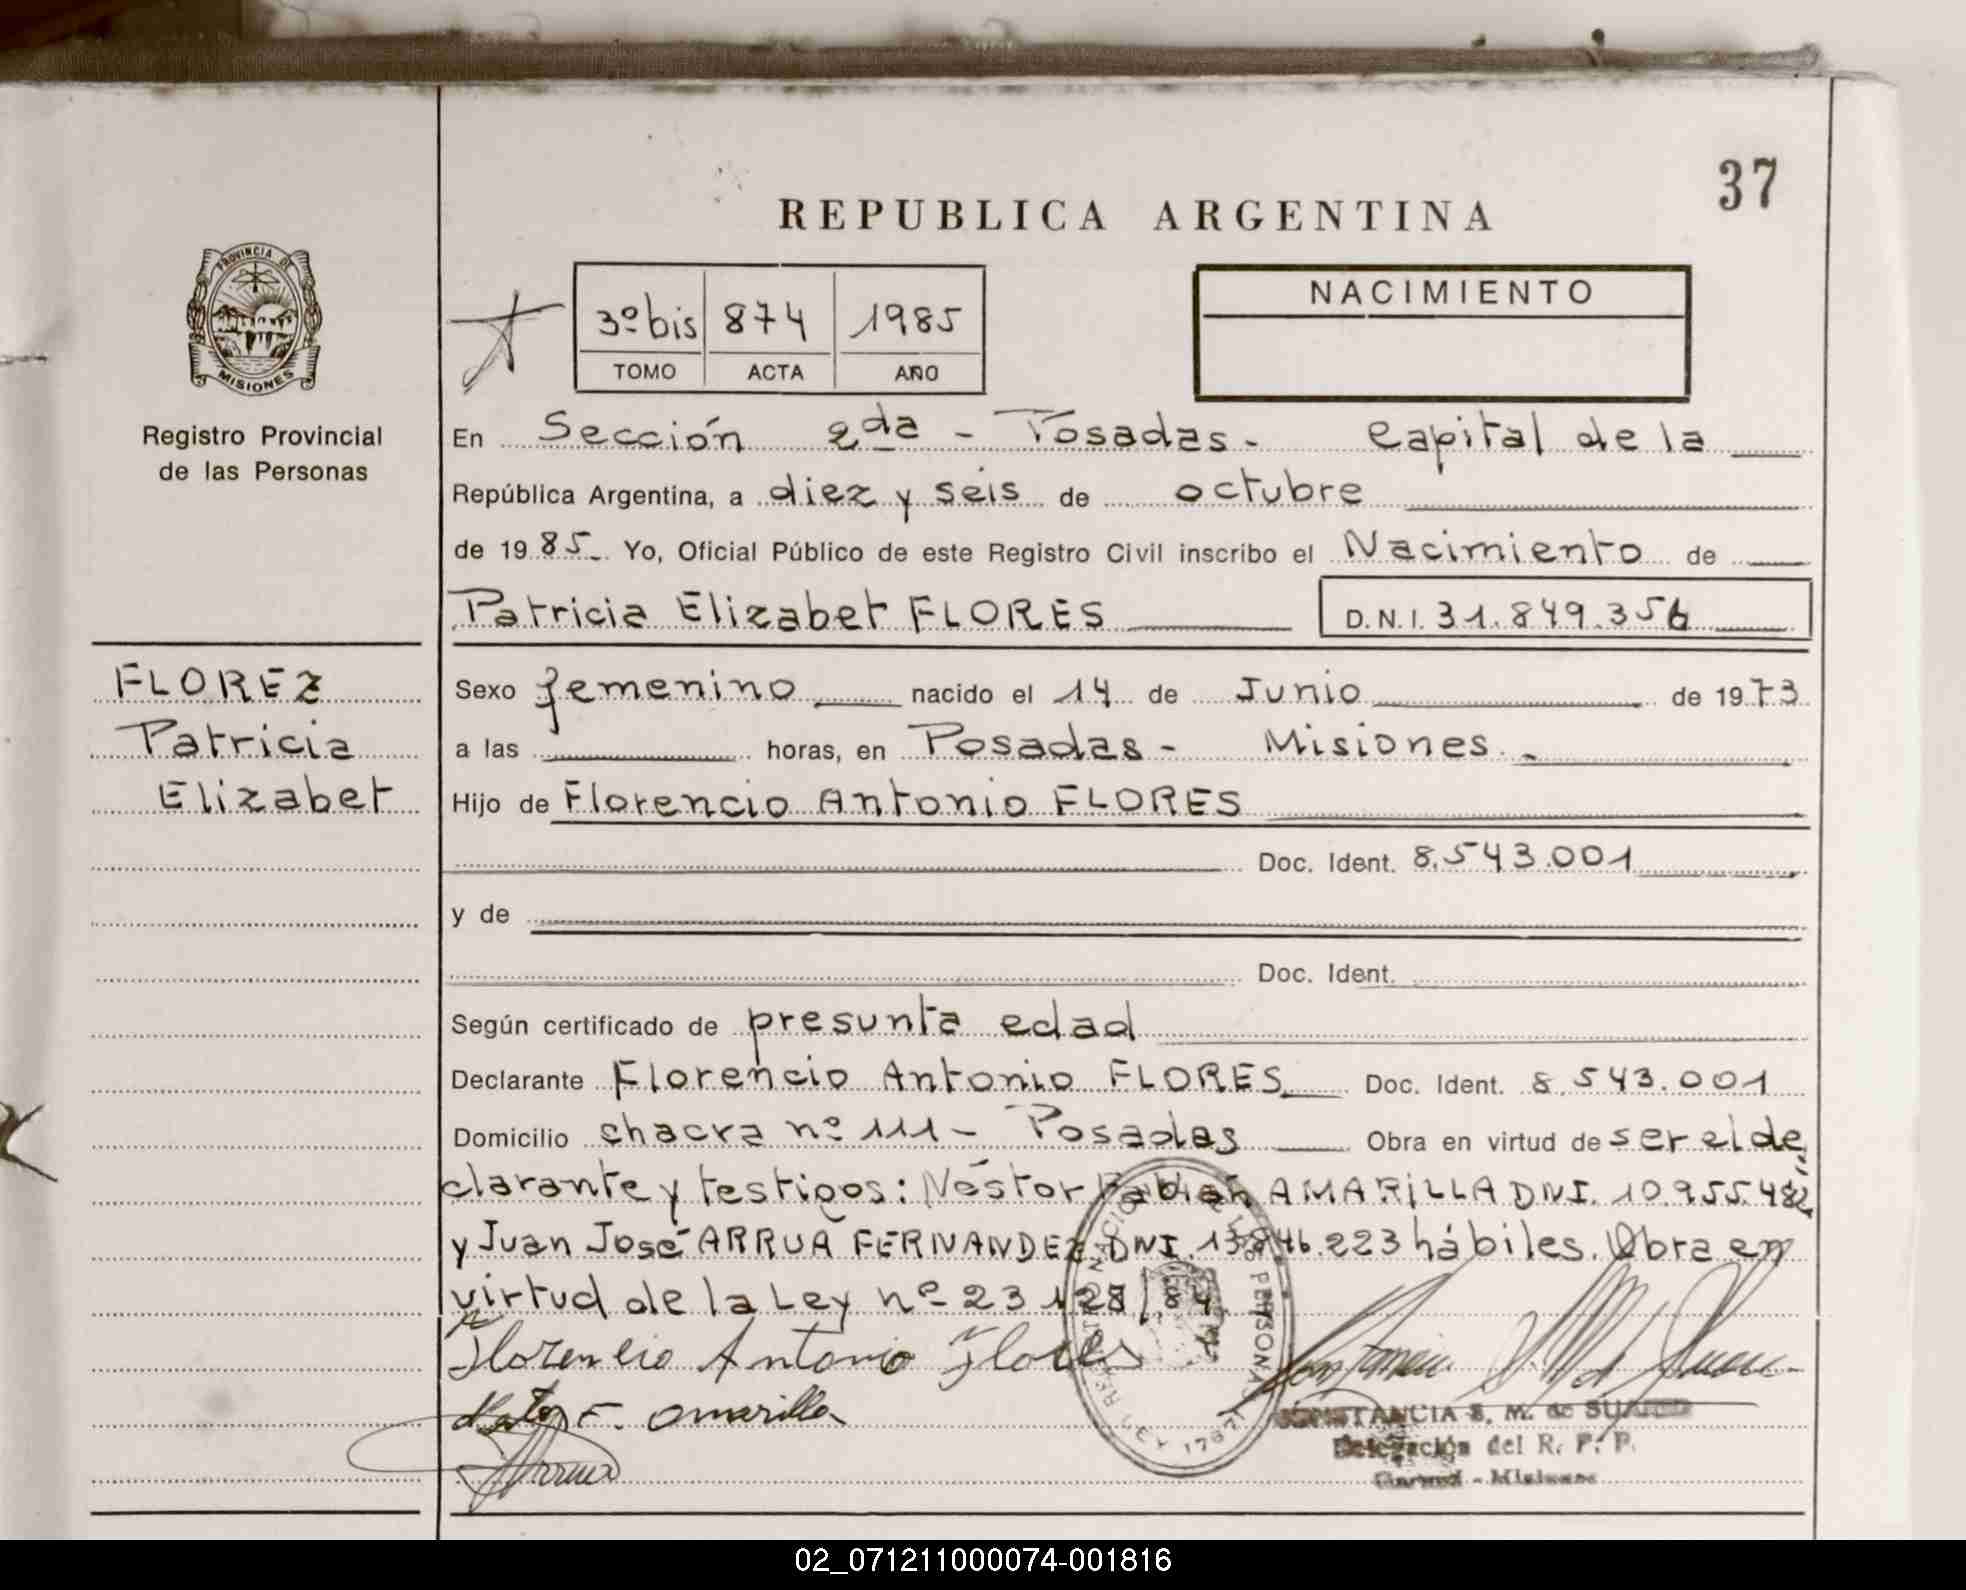 37
REPUBLICA ARGENTINA
PROVINCIA DE
MISIONES
Registro Provincial
de las Personas
3º bis 874 1985
TOMO ACTA AÑO
NACIMIENTO
En Sección 2da - Posadas - Capital de la
República Argentina, a diez y seis de octubre
de 1985 Yo, Oficial Público de este Registro Civil inscribo el Nacimiento de
Patricia Elizabet FLORES D.N.I. 31.849.356
FLOREZ
Patricia
Elizabet
Sexo femenino nacido el 14 de Junio de 1973
a las horas, en Posadas - Misiones.
Hijo de Florencio Antonio FLORES
Doc. Ident. 8.543.001
y de
Doc. Ident.
Según certificado de presunta edad
Declarante Florencio Antonio FLORES Doc. Ident. 8.543.001
Domicilio chacra nº 111 - Posadas Obra en virtud de ser el de
clarante y testigos: Néstor Fabián AMARILLA DNI. 10.955.482
y Juan José ARRUA FERNANDEZ DNI. 13.846.223 hábiles. Obra en
virtud de la Ley nº 23128/84
Florencio Antonio Flores
F. Amarilla
Arrua
CONSTANCIA S. M. de SUAREZ
Delegación del R. P. P.
Misiones
02_071211000074-001816